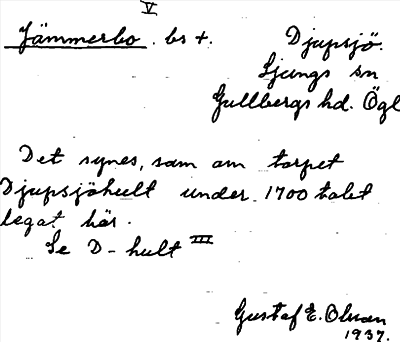 V
Jämmerbo. bs +. Djupsjö.
Ljungs sn
Gullbergs hd. Ögl
Det synes, som om torpet
Djupsjöhult under 1700 talet
legat här.
Se D-hult III
Gustaf E. Olsson
1937.